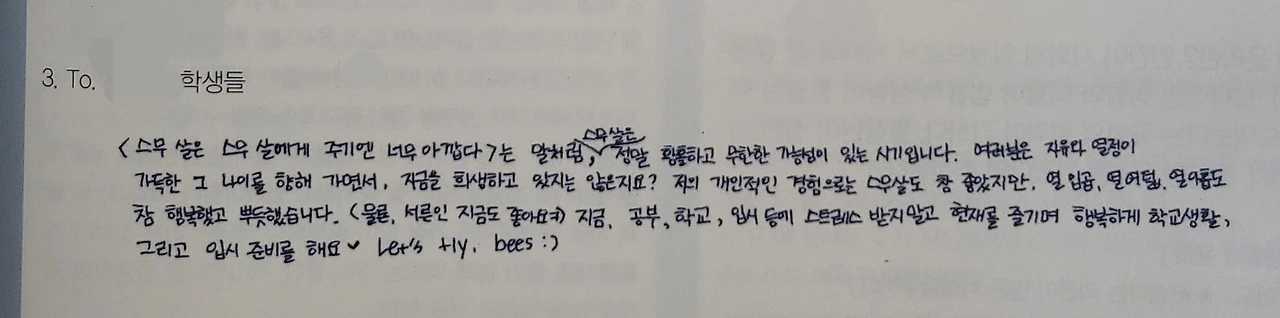 3. To. 학생들
<스무 살은 스무 살에게 주기엔 너무 아깝다>는 말처럼, 스무살은 정말 황홀하고 무한한 가능성이 있는 시기입니다. 여러분은 자유와 열정이
가득한 그 나이를 향해 가면서, 지금을 희생하고 있지는 않은지요? 저의 개인적인 경험으로는 스무살도 참 좋았지만, 열일곱, 열여덟, 열아홉도
참 행복했고 뿌듯했습니다. (물론, 서른인 지금도 좋아요) 지금, 공부, 학교, 입시 등에 스트레스 받지말고 현재를 즐기며 행복하게 학교생활,
그리고 입시 준비를 해요 Let's fly, bees :)